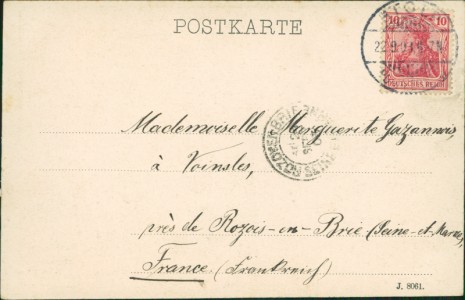 POSTKARTE
10 10
DEUTSCHES REICH
Mademoiselle Marguerite Gazannois,
à Voinsles,
près de Rozois-en-Brie (Seine-et-Marne)
France (Frankreich)
J. 8061.